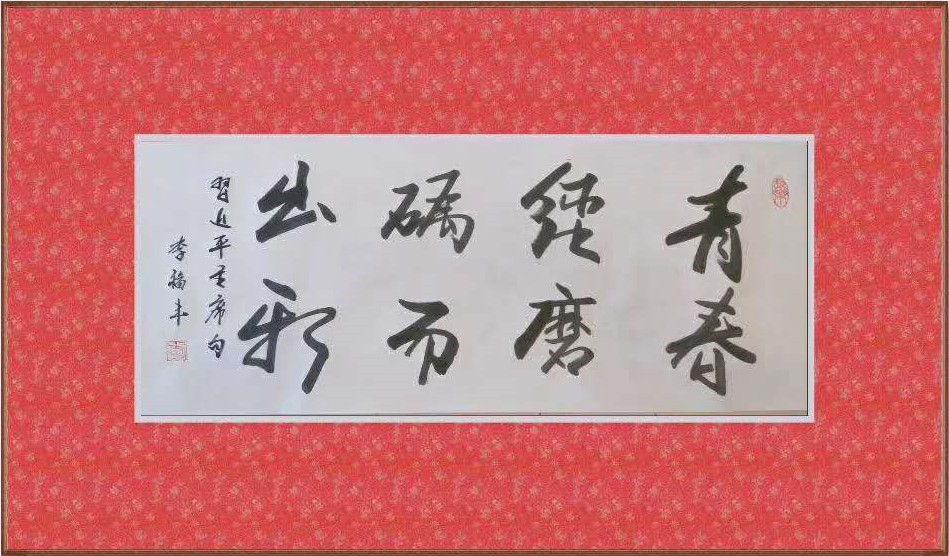 青春
經磨
礪而
出彩
習近平主席句
李福丰